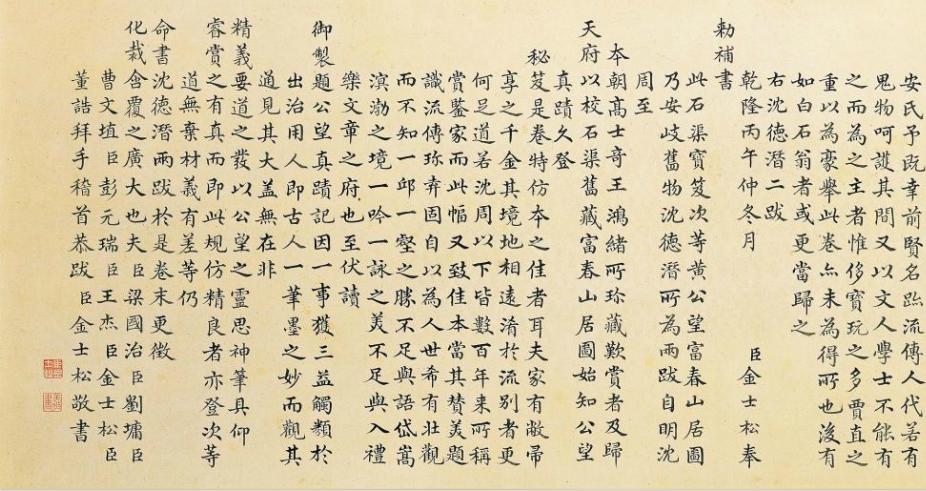 安氏予既幸前賢名跡流傳人代若有
鬼物呵護其間又以文人學士不能有
之而為之主者惟侈寶玩之多賈直之
重以為豪舉此卷亦未為得所也後有
如白石翁者或更當歸之
右沈德潛二跋
乾隆丙午仲冬月 臣金士松奉
勅補書
此石渠寶笈次等黃公望富春山居圖
乃安岐舊物沈德潛所為兩跋自明沈
周至
本朝高士奇王鴻緒所珍藏歎賞者及歸
天府以校石渠舊藏富春山居圖始知公望
真蹟久登
秘笈是卷特仿本之佳者耳夫家有敝帚
享之千金其境地相遠淆於流別者更
何足道若沈周以下皆數百年來所稱
賞鑒家而此幅又致佳本當其贊美題
識流傳珎弆固自以為人世希有壯觀
而不知一邱一壑之勝不足與語岱嵩
滇渤之境一吟一詠之美不足與入禮
樂文章之府也至伏讀
御製題公望真蹟記因一事獲三益觸類於
出治用人即古人一筆墨之妙而觀其
通見其大蓋無在非
精義要道之發以公望之靈思神筆具仰
睿賞之有真而即此規仿精良者亦登次等
道無棄材義有差等仍
命書沈德潛兩跋於是卷末更徵
化裁含覆之廣大也夫臣梁國治臣劉墉臣
曹文埴臣彭元瑞臣王杰臣金士松臣
董誥拜手稽首恭跋 臣金士松敬書